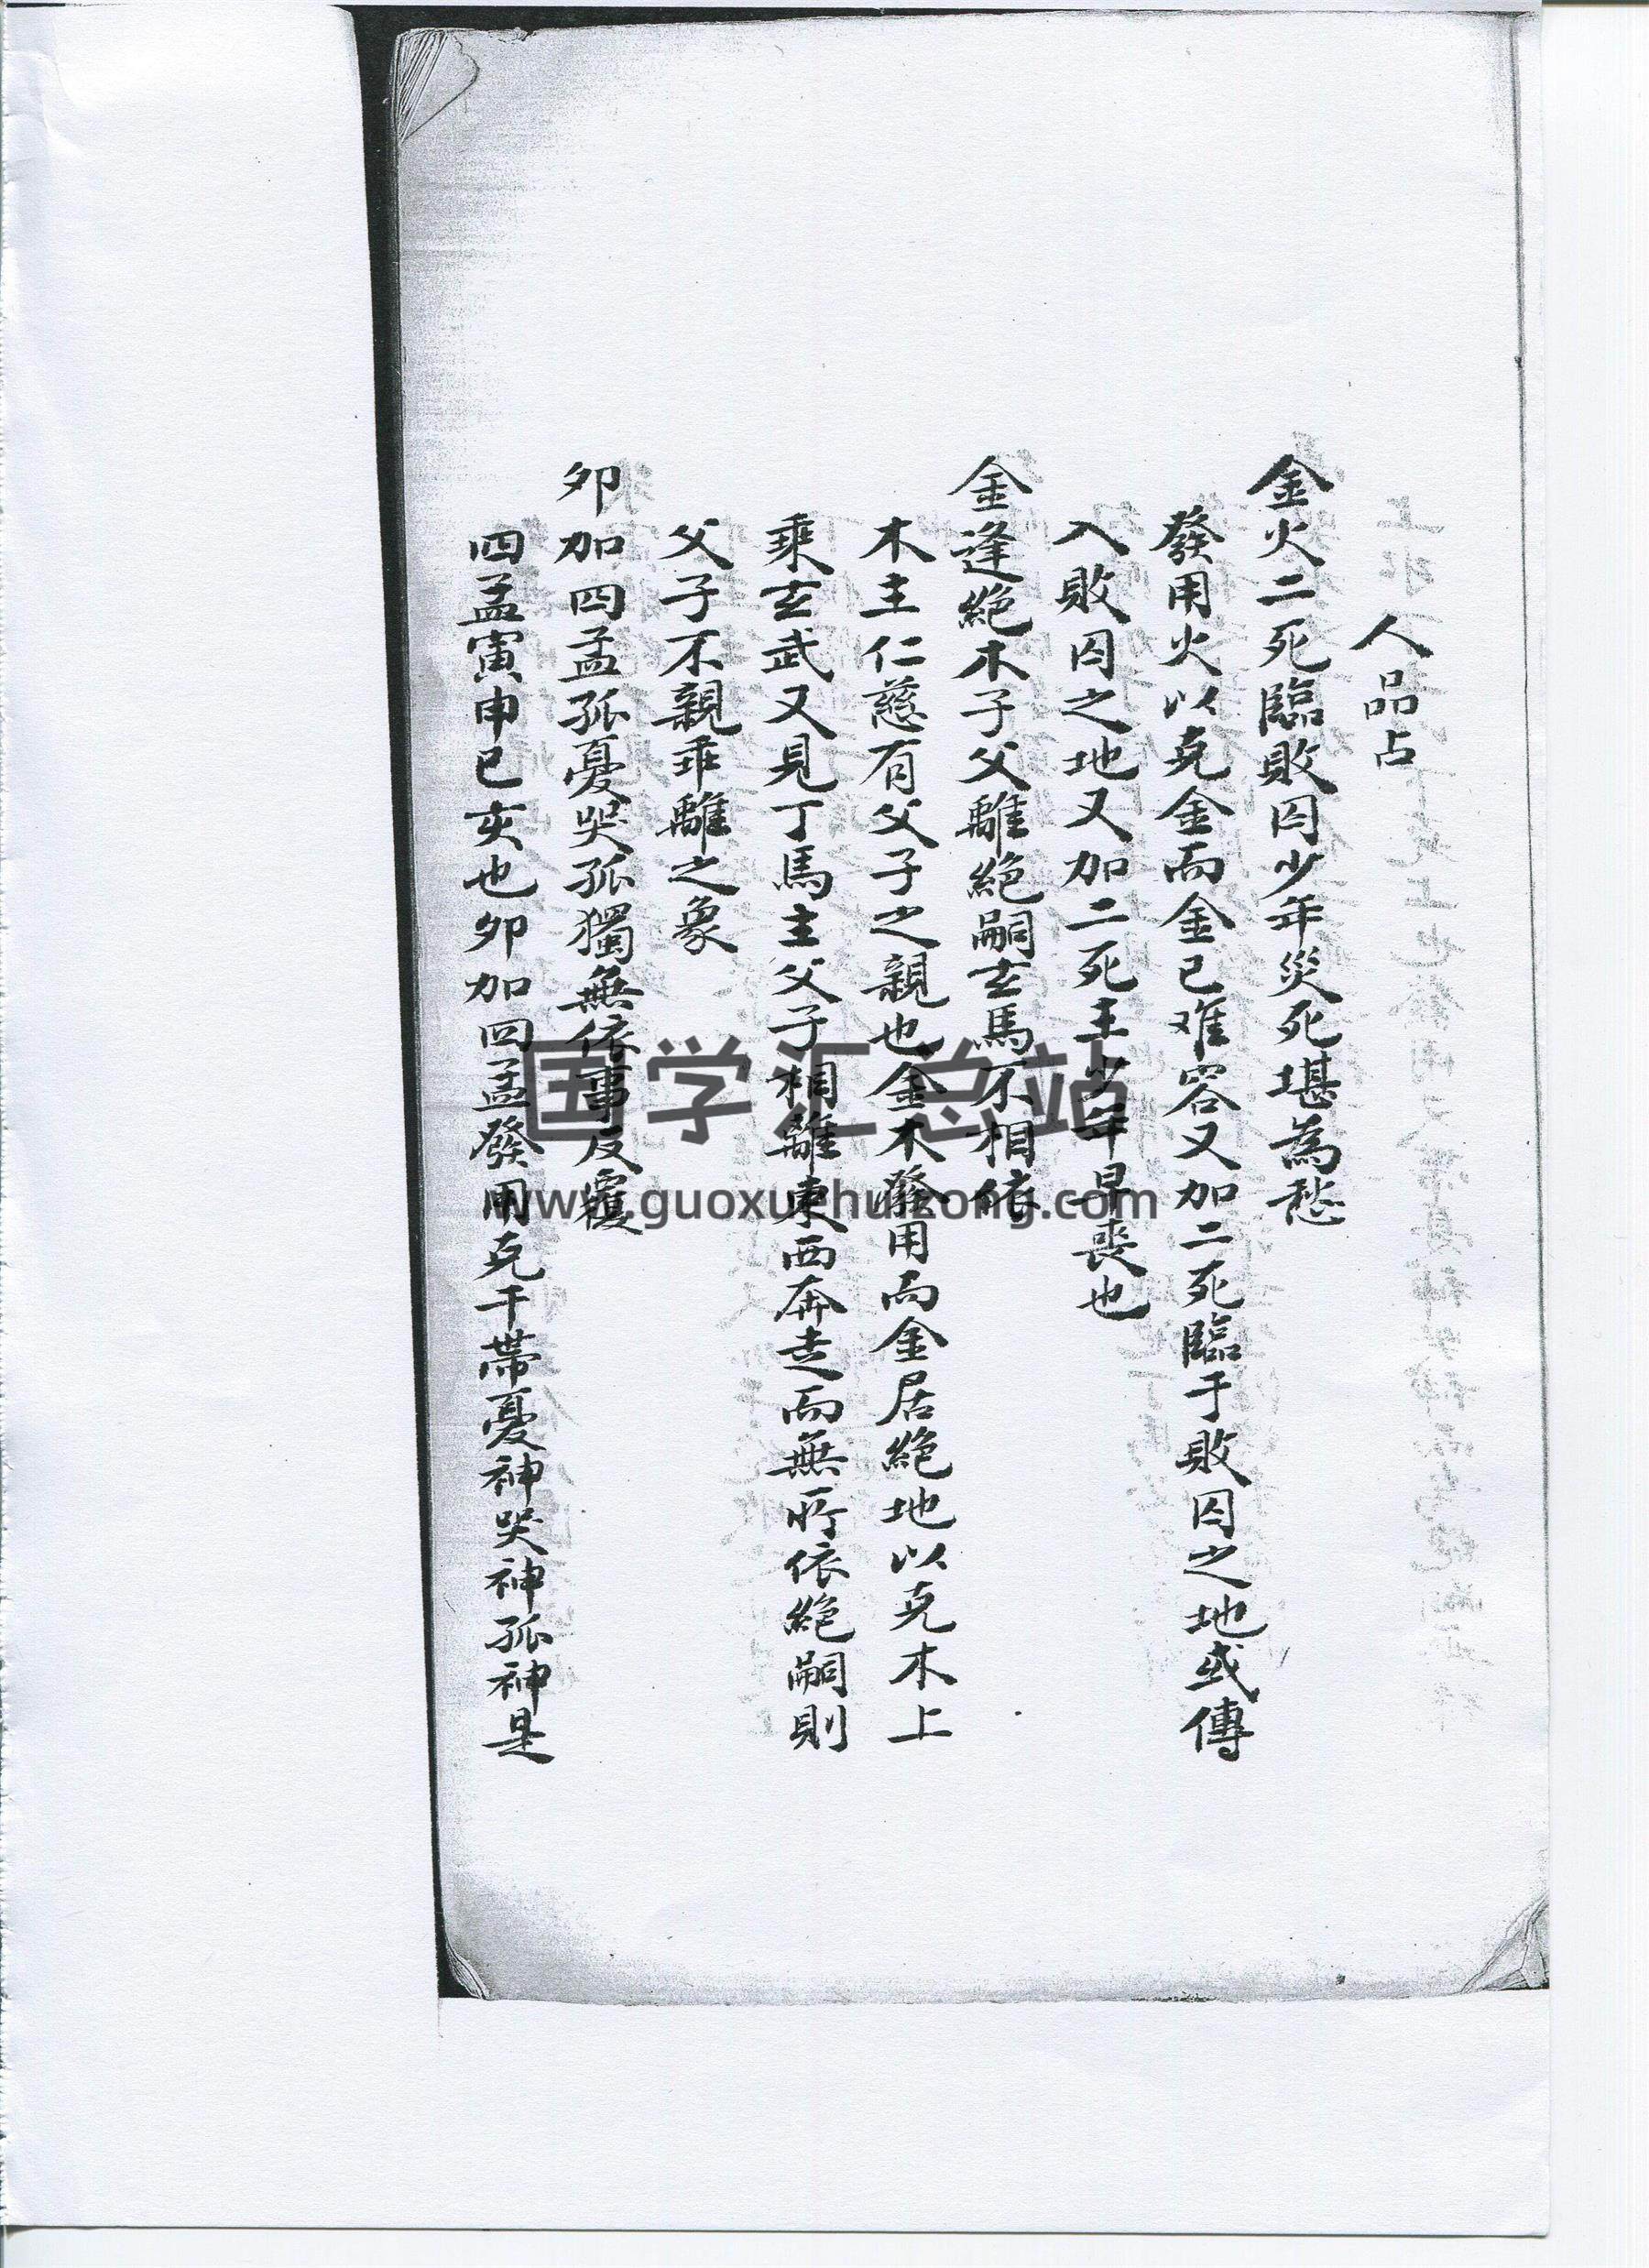 人品占
金火二死臨敗囚少年災死堪為愁
發用火以克金而金已难容又加二死臨于敗囚之地或傳
入敗囚之地又加二死主少年早喪也
金逢絕木子父離絕嗣玄馬不相依
木主仁慈有父子之親也金木發用而金居絕地以克木上
乘玄武又見丁馬主父子相離東西奔走而無所依絕嗣則
父子不親乖離之象
卯加四孟孤憂哭孤獨無依事反覆
四孟寅申巳亥也卯加四孟發用克干帶憂神哭神孤神是
国学汇总站
www.guoxuehuizong.com